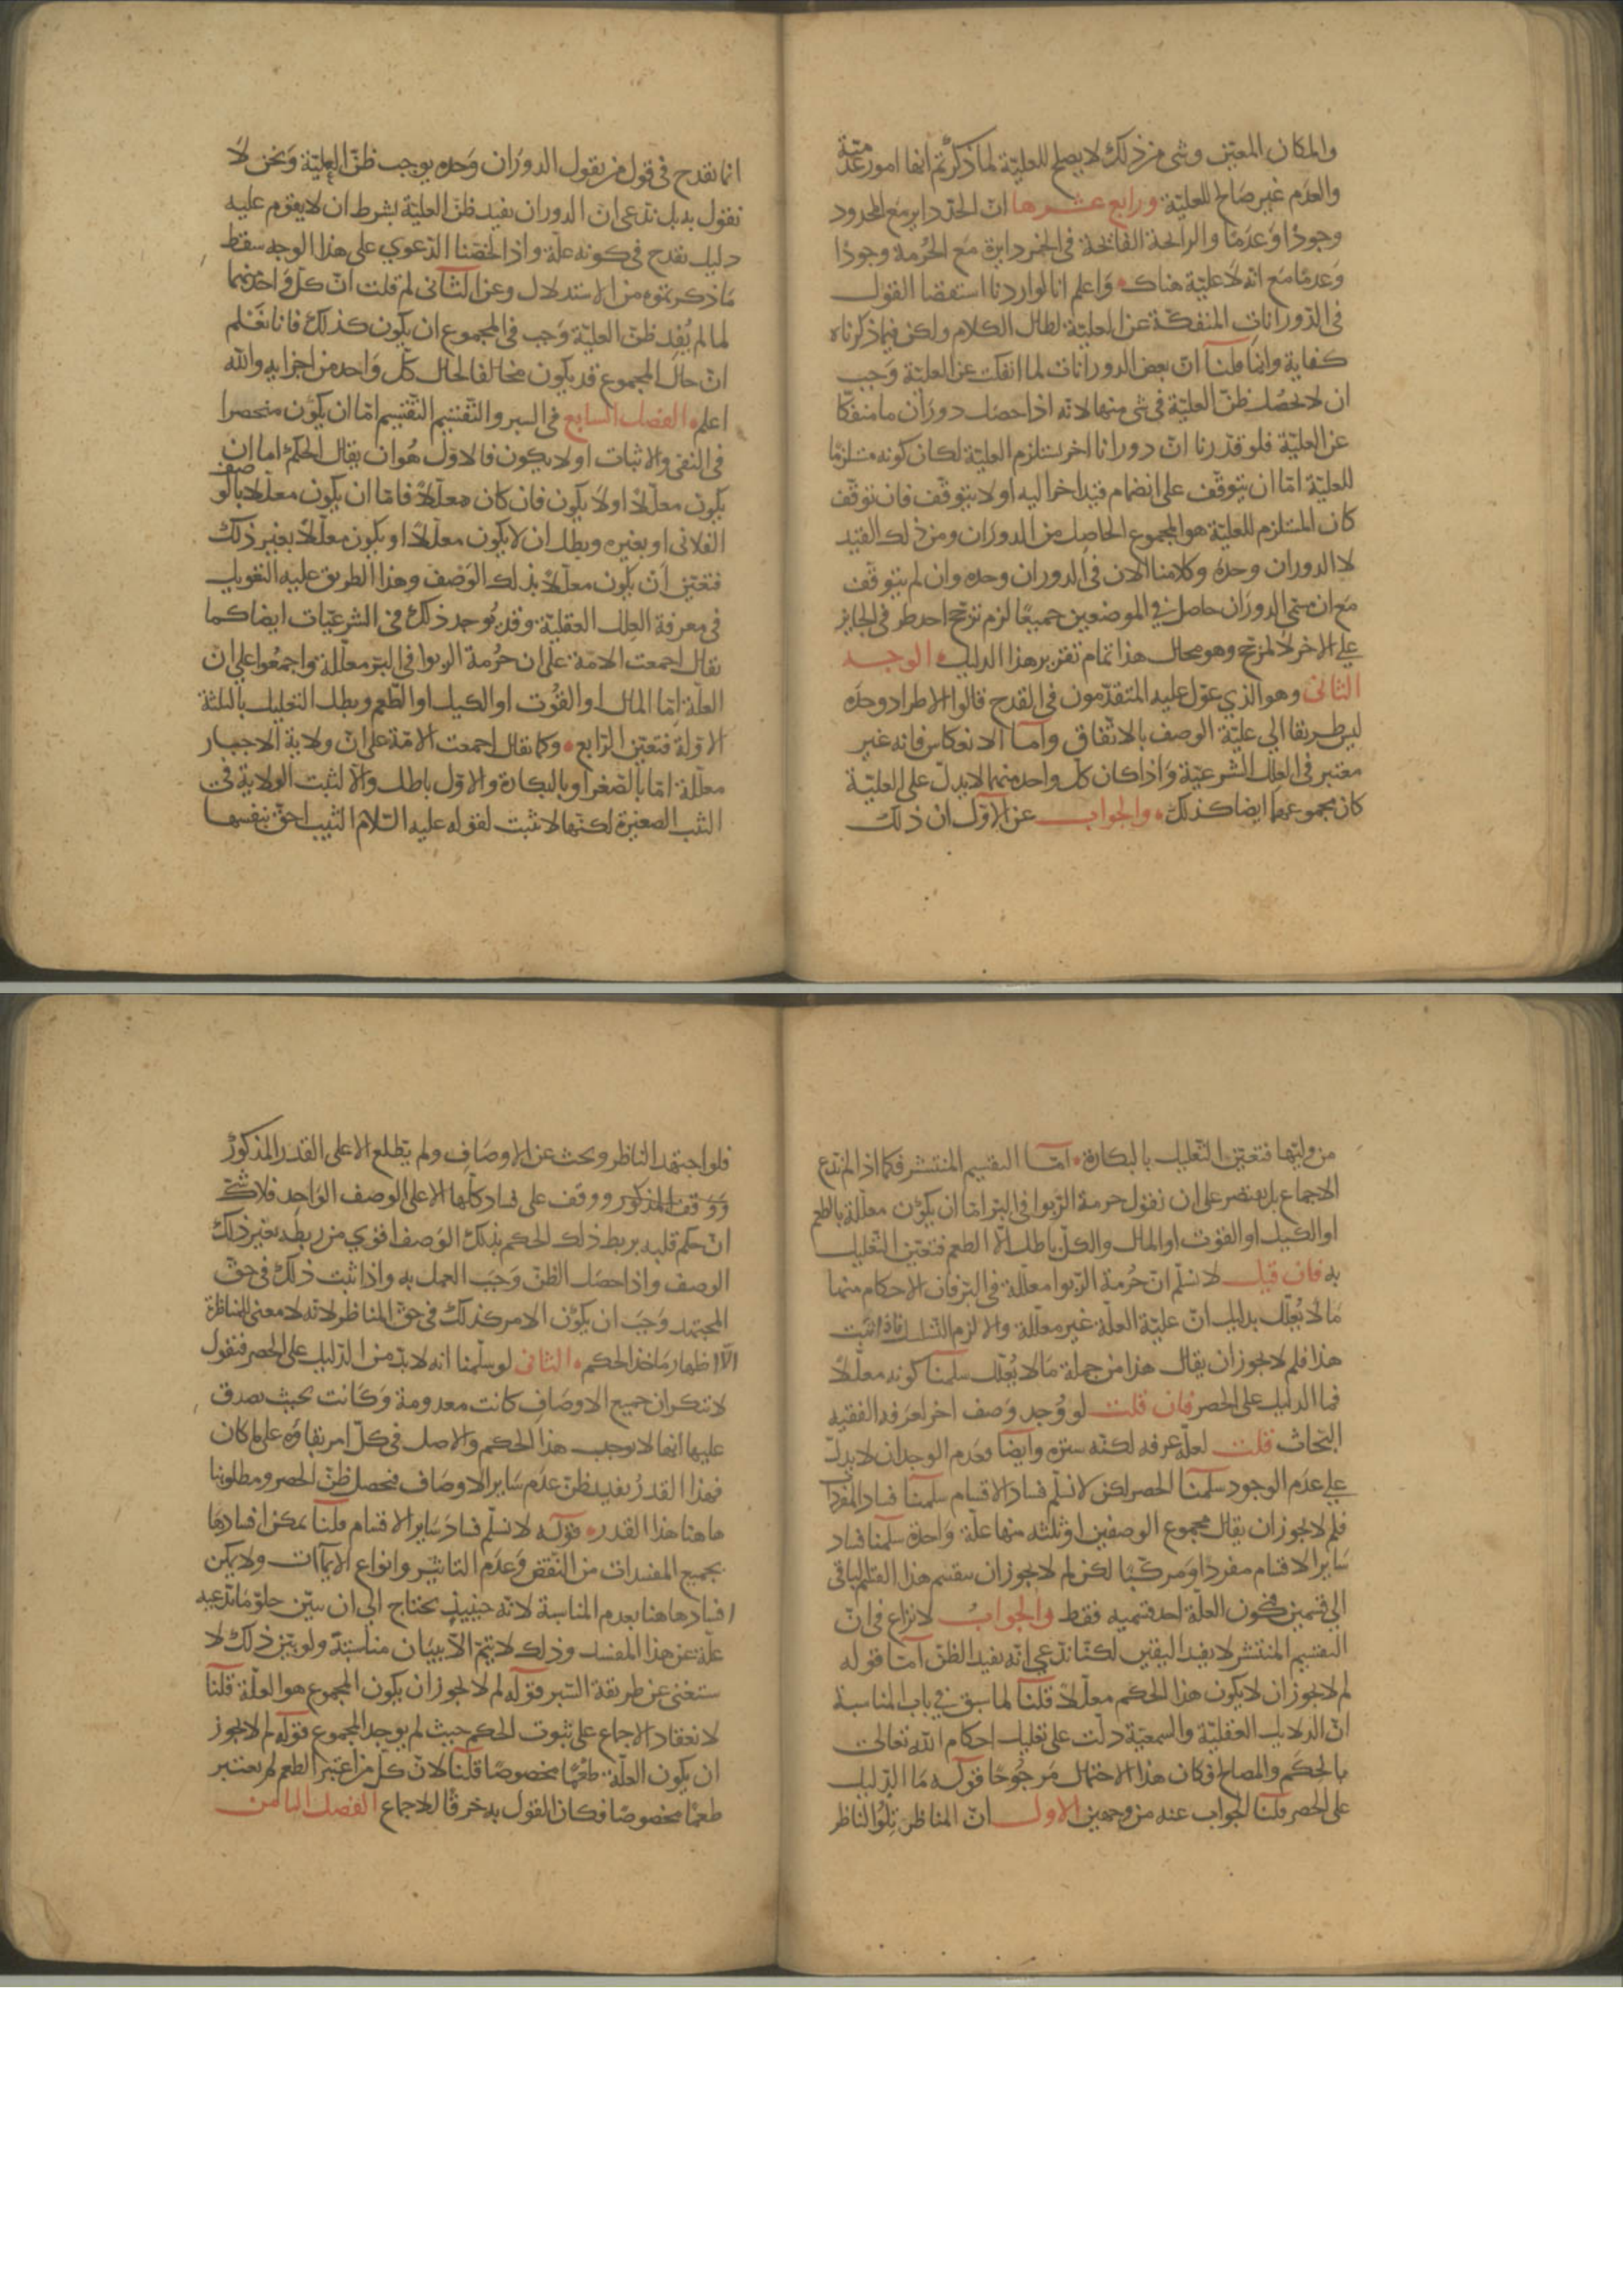 والمكان المعيّن وشى من ذلك لا يصلح للعليّة لما ذكرتم انها امور عدميّة
والعدم غير صالح للعليّة ورابع عشرها انّ الحدّ داير مع المحدود
وجودًا وعدمًا والرايحة الفايحة في الخمر دايرة مع الحُرمة وجودًا
وعدمًا مع انه لا عليّة هناك واعلم انا لو اردنا استقصا القول
في الدورانات المنفكّة عن العليّة لطال الكلام ولكن فيما ذكرناه
كفاية وانما قلنا انّ بعض الدورانات لما انفكت عن العليّة وجب
ان لا يحصل ظنّ العليّة في شى منها لانه اذا حصل دوران ما منفكّا
عن العليّة فلو قدّرنا انّ دورانا اخر يستلزم العليّة لكان كونه مستلزمًا
للعليّة امّا ان يتوقّف على انضمام قيد اخر اليه او لا يتوقّف فان توقّف
كان المستلزم للعليّة هو المجموع الحاصل من الدوران ومن ذلك القيد
لا الدوران وحده وكلامنا الان في الدوران وحده وان لم يتوقّف
مع ان مسمّى الدوران حاصل في الموضعين جميعًا لزم ترجّح احد طرفي الجايز
على الاخر لا لمرجّح وهو محال هذا تمام تقرير هذا الدليل الوجه
الثانى وهو الذي عوّل عليه المتقدّمون في القدح قالوا الاطراد وحده
ليس طريقا الي عليّة الوصف بالاتفاق وامّا الانعكاس فانه غير
معتبر في العلل الشرعيّة واذا كان كلّ واحد منهما لا يدلّ على العليّة
كان مجموعهما ايضا كذلك والجواب عن الاوّل ان ذلك
انما يقدح في قول من يقول الدوران وحده يوجب ظنّ العليّة ونحن لا
نقول به بل ندعى انّ الدوران يفيد ظنّ العليّة بشرط ان لا يقوم عليه
دليل يقدح في كونه علّة واذا لخّصنا الدعوي على هذا الوجه سقط
ما ذكرتموه من الاستدلال وعن الثانى لم قلت انّ كلّ واحد منهما
لما لم يُفِد ظنّ العليّة وجب في المجموع ان يكون كذلك فانا نعلم
انّ حال المجموع قد يكون مخالفا لحال كلّ واحد من اجزايه والله
اعلم الفصل السابع في السبر والتقسيم التقسيم امّا ان يكون منحصرا
في النفى والاثبات او لا يكون فالاوّل هُو ان يقال الحكم اما ان
يكون معلّلًا او لا يكون فان كان معلّلًا فامّا ان يكون معلّلا بالوصف
الفلانى او بغيره وبطل ان لا يكون معلّلًا او يكون معلّلًا بغير ذلك
فتعيّن ان يكون معلّلًا بذلك الوصف وهذا الطريق عليه التعويل
في معرفة العلل العقليّة وقد يُوجد ذلك في الشرعيّات ايضا كما
يقال اجمعت الامّة على ان حُرمة الربوا في البرّ معلّلة واجمعُوا على انّ
العلّة امّا المال او القُوت او الكيل او الطعم وبطل التعليل بالثلثة
الاوّلة فتعيّن الرّابع وكما يقال اجمعت الامّة على انّ ولاية الاجبار
معلّلة امّا بالصّغر او بالبكارة والاوّل باطل والّا لثبت الولاية في
الثيب الصغيرة لكنّها لا تثبت لقوله عليه السّلام الثيب احقّ بنفسها
من وليّها فتعيّن التعليل بالبكارة امّا التقسيم المنتشر فكما اذا لم ندّع
الاجماع بل نقتصر على ان نقول حرمة الرّبوا في البرّ امّا ان يكون معلّلة بالطعم
او الكيل او القوت او المال والكلّ باطل الّا الطعم فتعيّن التّعليل
به فان قيل لا نسلّم انّ حُرمة الرّبوا معلّلة في البرّ فان الاحكام منها
مَا لا يُعلّل بدليل انّ عليّة العلّة غير معلّلة والا لزم التسلسل فاذا ثبت
هذا فلم لا يجوز ان يقال هذا من جملة مَا لا يُعلّل سلّمنا كونه معلّلًا
فما الدليل على الحصر فان قلت لو وُجد وصف اخر لعرفه الفقيه
البحّاث قلت لعلّه عرفه لكنّه ستره وايضا فعدم الوجدان لا يدلّ
على عدم الوجود سلّمنا الحصر لكن لا نسلّم فساد الاقسام سلّمنا فساد المفردات
فلم لا يجوز ان يقال مجموع الوصفين او ثلثة منها علّة واحدة سلّمنا فساد
سَاير الاقسام مفردًا ومركّبًا لكن لم لا يجوز ان ينقسم هذا القسم الباقى
الي قسمين فتكون العلّة احد قسميه فقط والجوابُ لا نزاع في انّ
التقسيم المنتشر لا يفيد اليقين لكنّا ندّعي انّه يفيد الظنّ امّا قوله
لم لا يجوز ان لا يكون هذا الحكم معلّلًا قلنا لما سبق في باب المناسبة
انّ الدلايل العقليّة والسمعيّة دلّت على تعليل احكام الله تعالى
بالحكم والمصالح فكان هذا الاحتمال مرجُوحًا قوله مَا الدّليل
على الحصر قلنا الجواب عنه من وجهين الاول انّ المناظر تِلوُ الناظر
فلو اجتهد الناظر وبحث عن الاوصَاف ولم يطّلع الا على القدر المذكور
ووقف المذكور ووقف على فساد كلّها الا على الوصف الواحد فلا شكّ
انّ حكم قلبه بربط ذلك الحكم بذلك الوَصف اقوي من ربطه بغير ذلك
الوصف واذا حصَل الظنّ وَجَبَ العمل به واذا ثبت ذلك في حقّ
المجتهد وَجَبَ ان يكون الامر كذلك في حقّ المناظر لانّه لا معنى للمناظرة
الّا اظهار مَاخذ الحكم الثانى لو سلّمنا انه لا بدّ من الدّليل على الحصر فنقول
لا تنكر ان جميع الاوصَاف كانت معدومة وكانت بحيث يصدق
عليها انها لا توجب هذا الحكم والاصل في كلّ امر بقاؤه على ما كان
فهذا القدرُ يفيد ظنّ عدم سَاير الاوصاف فيحصل ظنّ الحصر ومطلوبنا
هاهنا هذا القدر قوله لا نسلّم فساد سَاير الاقسام قلنا يمكن افسادها
بجميع المفسدات من النّقض وعدم التاثير وانواع الايماات ولا يمكن
افسادها هنا بعدم المناسبة لانّه حينيذ يحتاج الي ان يبيّن خلوّ مَا يدّعيه
علّة عن هذا المفسد وذلك لا يتمّ الّا ببيان مناسبته ولو بيّن ذلك لا
ستغنى عن طريقة السّبر قوله لم لا يجوز ان يكون المجموع هو العلّة قلنا
لانعقاد الاجماع على ثبوت الحكم حيث لم يوجد المجموع قوله لم لا يجوز
ان يكون العلّة طعمًا مخصوصًا قلنا لانّ كلّ من اعتبر الطعم لم يعتبر
طعمًا مخصوصًا فكان القول به خرقًا للاجماع الفصل الثامن